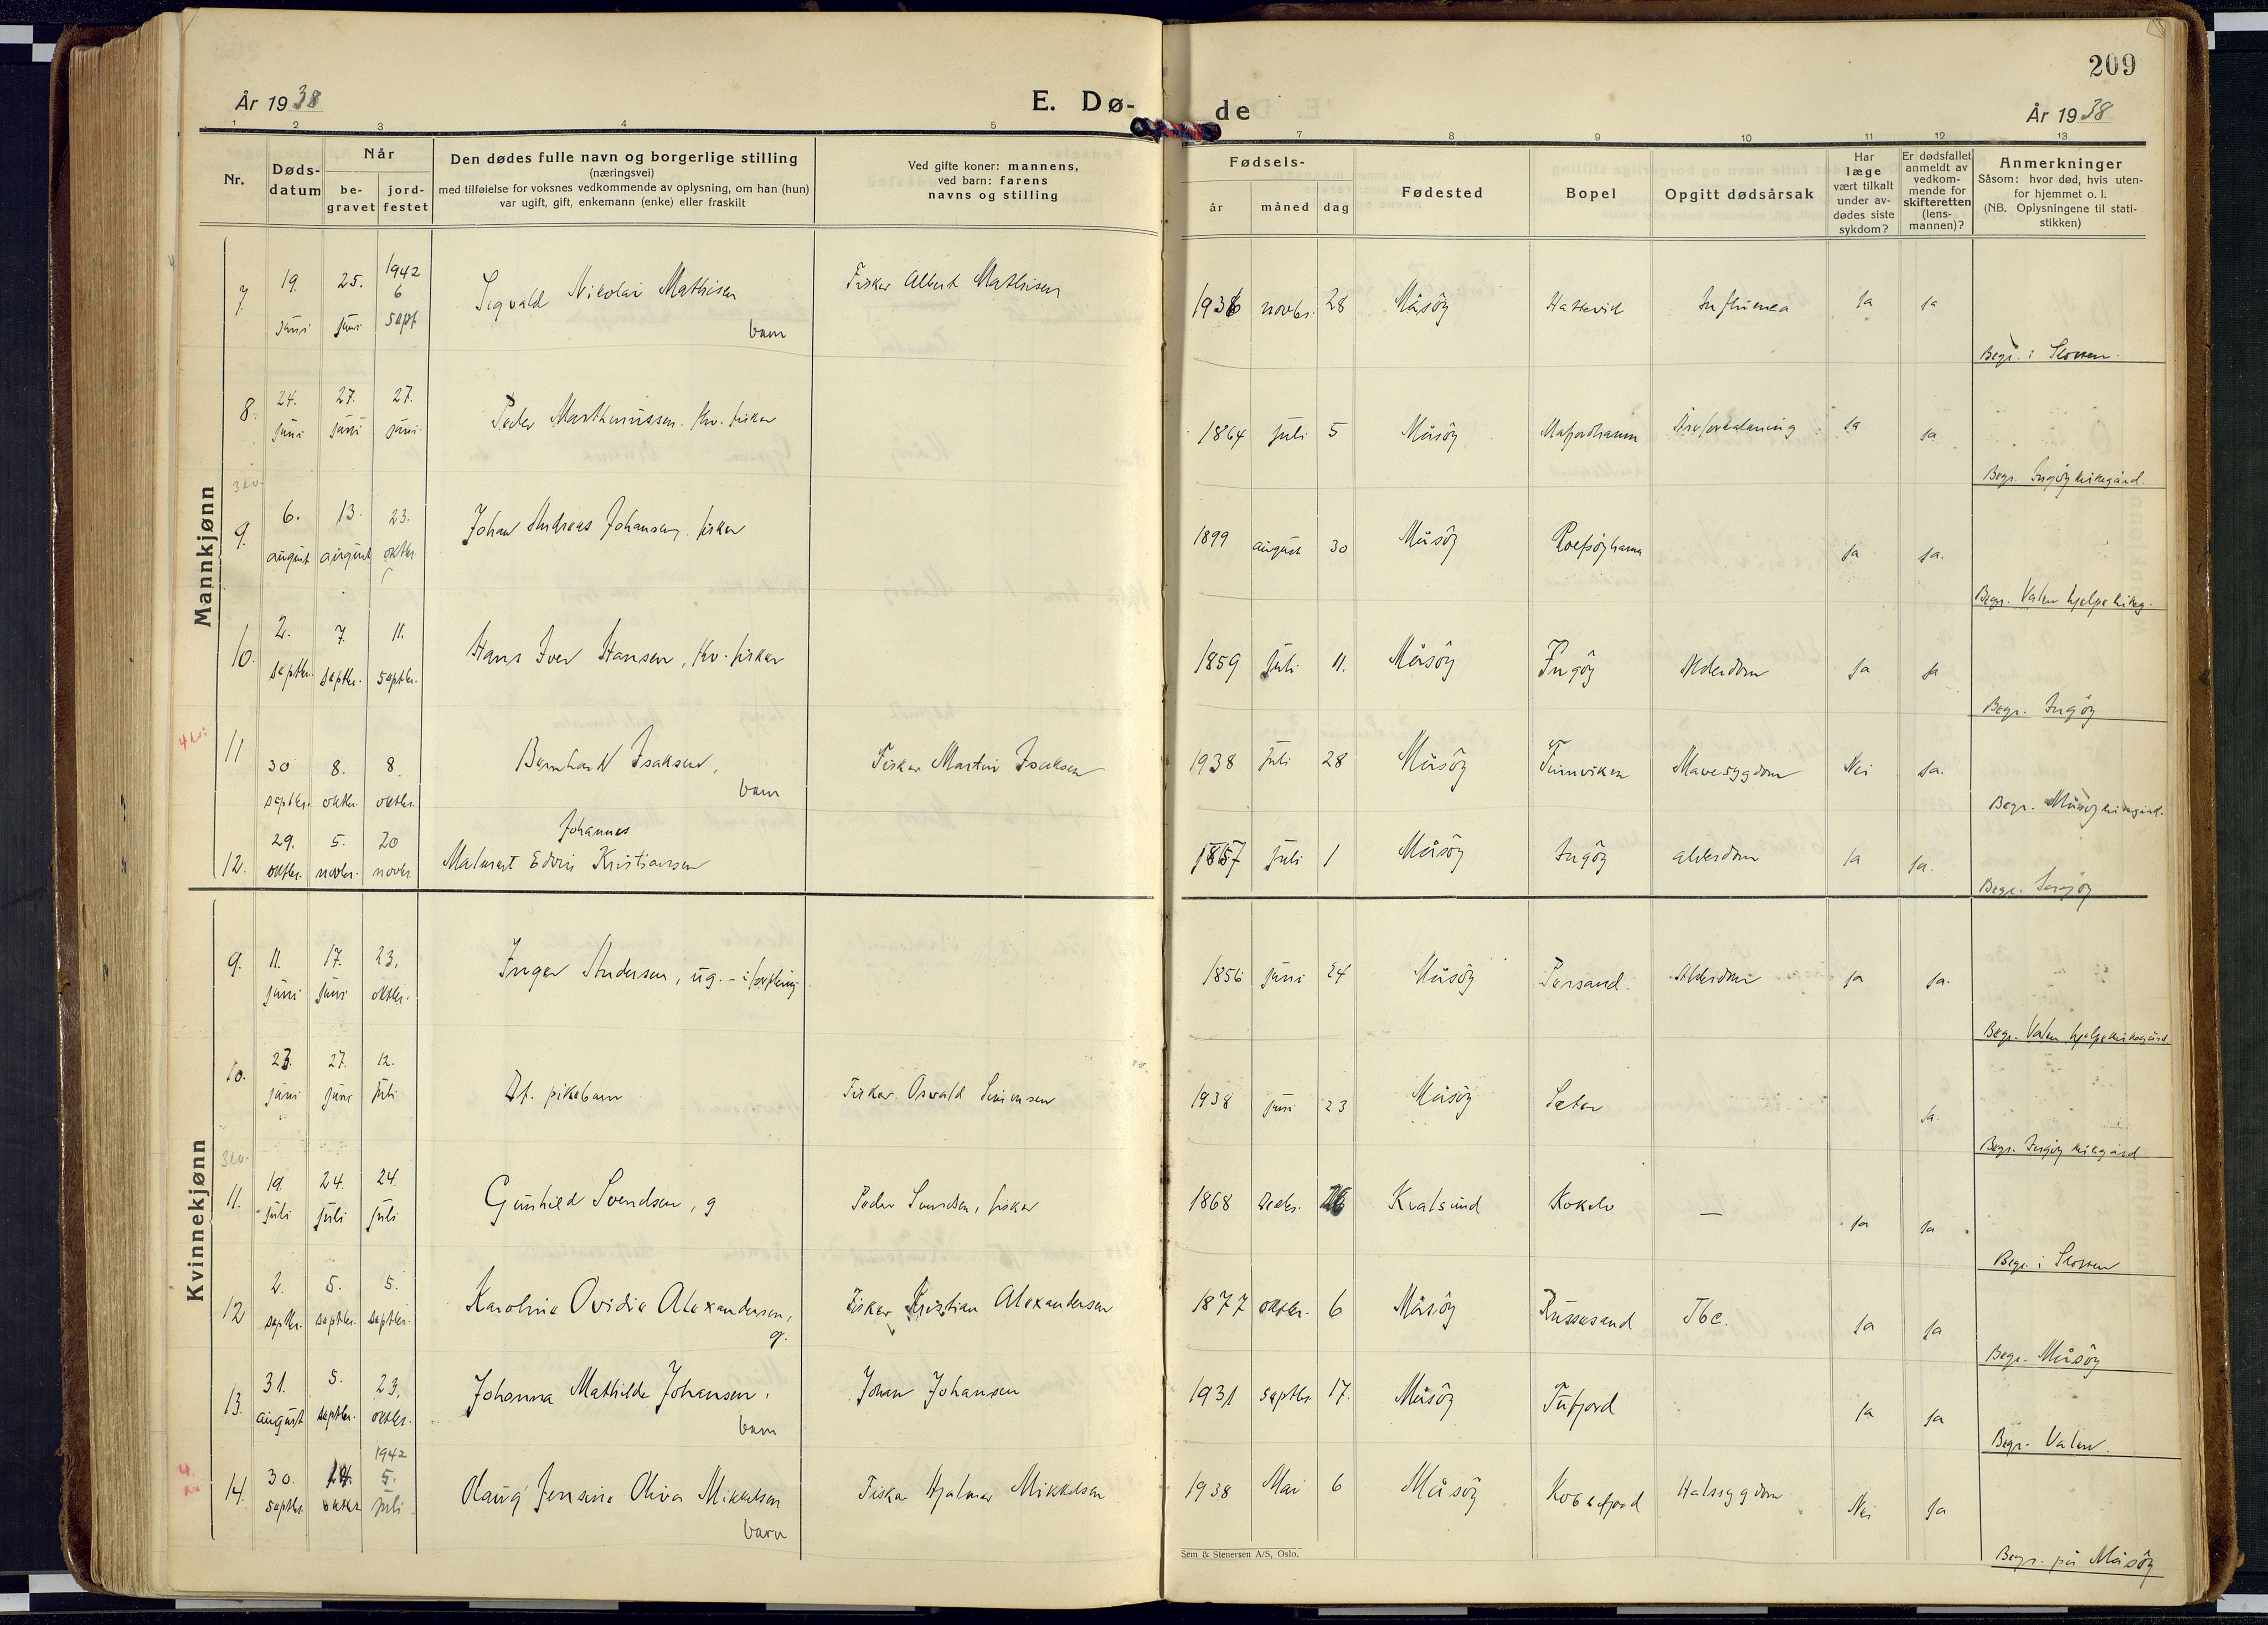 209
År 1938
E. Dø-
de
År 1938
1 2 3 4 5 7 8 9 10 11 12 13
Nr.
Døds-
datum
Når
be-
gravet
jord-
festet
Den dødes fulle navn og borgerlige stilling
(næringsvei)
med tilføielse for voksnes vedkommende av oplysning, om han (hun)
var ugift, gift, enkemann (enke) eller fraskilt
Ved gifte koner: mannens,
ved barn: farens
navns og stilling
Fødsels-
år måned dag
Fødested
Bopel
Opgitt dødsårsak
Har
læge
vært tilkalt
under av-
dødes siste
sykdom?
Er dødsfallet
anmeldt av
vedkom-
mende for
skifteretten
(lens-
mannen)?
Anmerkninger
Såsom: hvor død, hvis uten-
for hjemmet o. l.
(NB. Oplysningene til stati-
stikken)
Mannkjønn
7 19. juni 25. juni 1942 6 sept Sigvald Nikolai Mathisen barn Fisker Albert Mathisen 1936 novbr. 28 Måsöy Hattevik Influenca Ja Ja
Begr. i Slotten.
8. 24. juni 27. juni 27. juni Peder Marthinussen. fhv. fisker 1864 juli 5 Måsöy Mafjordhamn Åreforkalkning Ja Ja
Begr. Ingöy kirkegård.
9. 6. august 13. august 23. oktbr. Johan Andreas Johansen, fisker 1899 august 30 Måsöy Rolfsöyhamn Ja Ja.
Begr. Valen hjelpekirkeg.
10. 2. septbr. 7. septbr. 11. septbr. Hans Iver Hansen, fhv. fisker 1859 juli 11. Måsöy Ingöy Alderdom Ja Ja
Begr. Ingöy
4 kv.
11 30 septbr. 8. oktbr. 8. oktbr. Bernhard Isaksen, barn Fisker Martin Isaksen 1938 juli 28 Måsöy Tunviken Mavesygdom Nei Ja.
Begr. Måsöy kirkegård.
12. 29. oktbr. 5. novbr. 20 novbr Johannes
Edvin Kristiansen 1857 juli 1 Måsöy Ingöy alderdom Ja Ja.
Begr. Ingöy
Kvinnekjønn
9. 11. juni 17. juni 23. oktbr. Inger Andersen, ug. - i forpleining 1856 juni 24 Måsöy Sarsand. Alderdom Ja Ja.
Begr. Valen hjelpekirkegård
10. 23. juni 27. juni 12. juli Df. pikebarn Fisker Osvald Simonsen 1938 juni 23 Måsöy Sæter Ja.
Begr. Ingöy kirkegård
3 kv.
11. 19. juli 24. juli 24. juli Gunhild Svendsen, g Peder Svendsen, fisker 1868 Decbr. Kvalsund Kokelv — Ja Ja
Begr. i Slotten
12 2. septbr. 5. septbr. 5. septbr. Karoline Ovidie Alexandersen, g. Fisker Kristian Alexandersen 1877 oktbr. 6 Måsöy Russesand Tbc. Ja Ja
Begr. Måsöy
13. 31. august 5. septbr. 23. oktbr. Johanna Mathilde Johansen. barn Johan Johansen 1931 septbr 17. Måsöy Tufjord Ja Ja
Begr. Valen.
4. kv.
14. 30. septbr. 14. oktbr 1942 5. juli Olaug Jensine Oliva Mikkelsen barn Fisker Hjalmar Mikkelsen 1938 Mai 6 Måsöy Kobbefjord Halssygdom Nei Ja
Begr. på Måsöy
Sem & Stenersen A/S, Oslo.